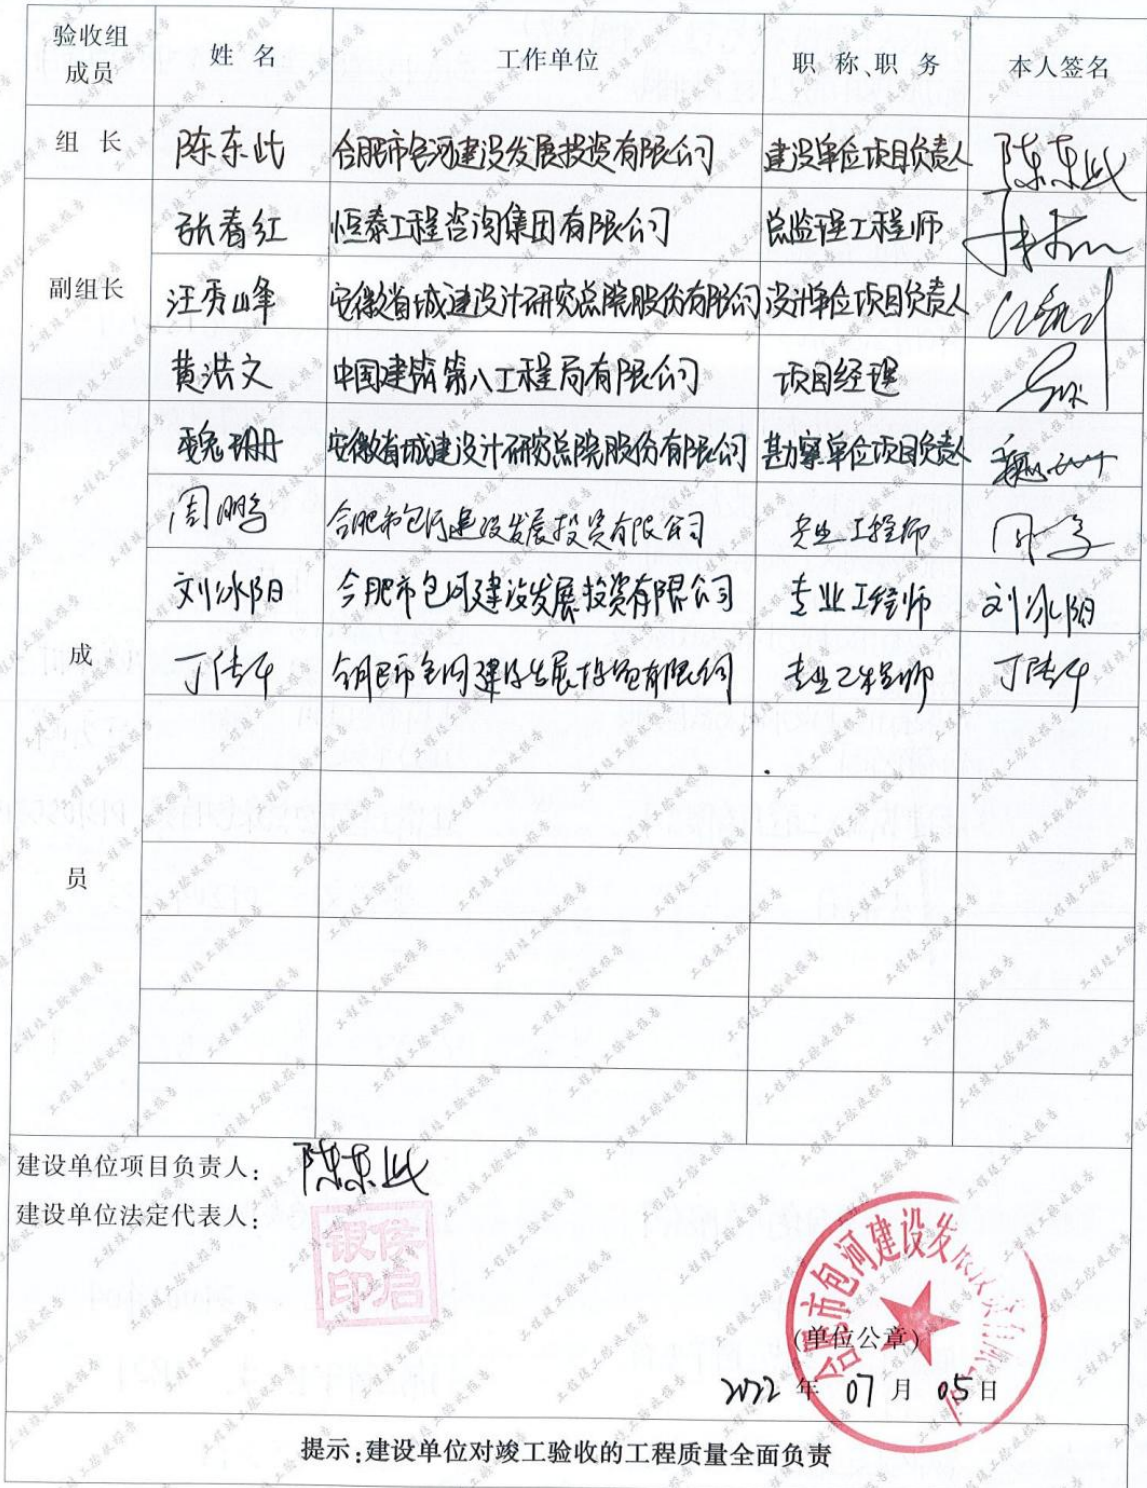 验收组成员 姓 名 工作单位 职 称、职 务 本人签名
组 长 陈东此 合肥市包河建设发展投资有限公司 建设单位项目负责人 陈东此
副组长
张春红 恒泰工程咨询集团有限公司 总监理工程师
汪秀峰 安徽省城建设计研究总院股份有限公司 设计单位项目负责人
黄浩文 中国建筑第八工程局有限公司 项目经理
成员
魏珊 安徽省城建设计研究总院股份有限公司 勘察单位项目负责人
周鹏 合肥市包河建设发展投资有限公司 专业工程师
刘冰阳 合肥市包河建设发展投资有限公司 专业工程师 刘冰阳
丁传 合肥市包河建设发展投资有限公司 专业工程师 丁传
建设单位项目负责人: 陈东此
建设单位法定代表人:
侯启银印
合肥市包河建设发展投资有限公司
(单位公章)
2022 年 07 月 05 日
提示:建设单位对竣工验收的工程质量全面负责
工程竣工验收报告